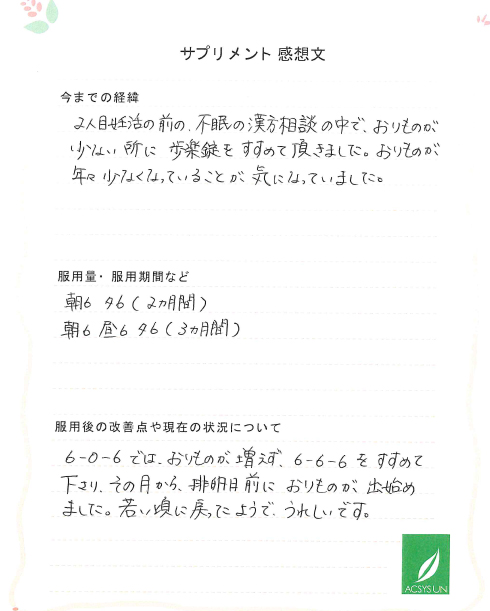 サプリメント 感想文
今までの経緯
2人目妊活の前の、不眠の漢方相談の中で、おりものが
少ない所に 歩楽錠を すすめて頂きました。おりものが
年々 少なくなっていることが 気になっていました。
服用量・服用期間など
朝6 夕6(2ヵ月間)
朝6 昼6 夕6(3ヵ月間)
服用後の改善点や現在の状況について
6-0-6では、おりものが増えず、6-6-6をすすめて
下さり、その月から、排卵日前に おりものが 出始め
ました。若い頃に戻ったようで、うれしいです。
ACSYSUN